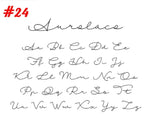 #24
Aurslacs
Aa Bb Cc Dd Ee
Ff Gg Hh Ii Jj
Kk Ll Mm Nn Oo
Pp Qq Rr Ss Tt
Uu Vv Ww Xx Yy Zz